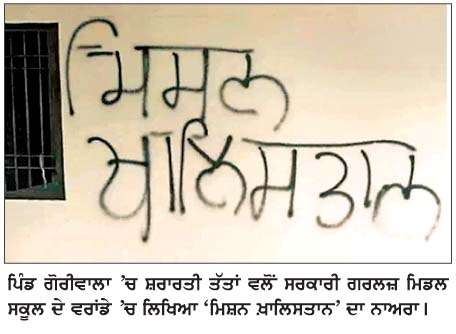 ਮਿਸਨ
ਖਾਲਿਸਤਾਨ
ਪਿੰਡ ਗੋਰੀਵਾਲਾ 'ਚ ਸ਼ਰਾਰਤੀ ਤੱਤਾਂ ਵਲੋਂ ਸਰਕਾਰੀ ਗਰਲਜ਼ ਮਿਡਲ
ਸਕੂਲ ਦੇ ਵਰਾਂਡੇ 'ਚ ਲਿਖਿਆ 'ਮਿਸ਼ਨ ਖ਼ਾਲਿਸਤਾਨ' ਦਾ ਨਾਅਰਾ।